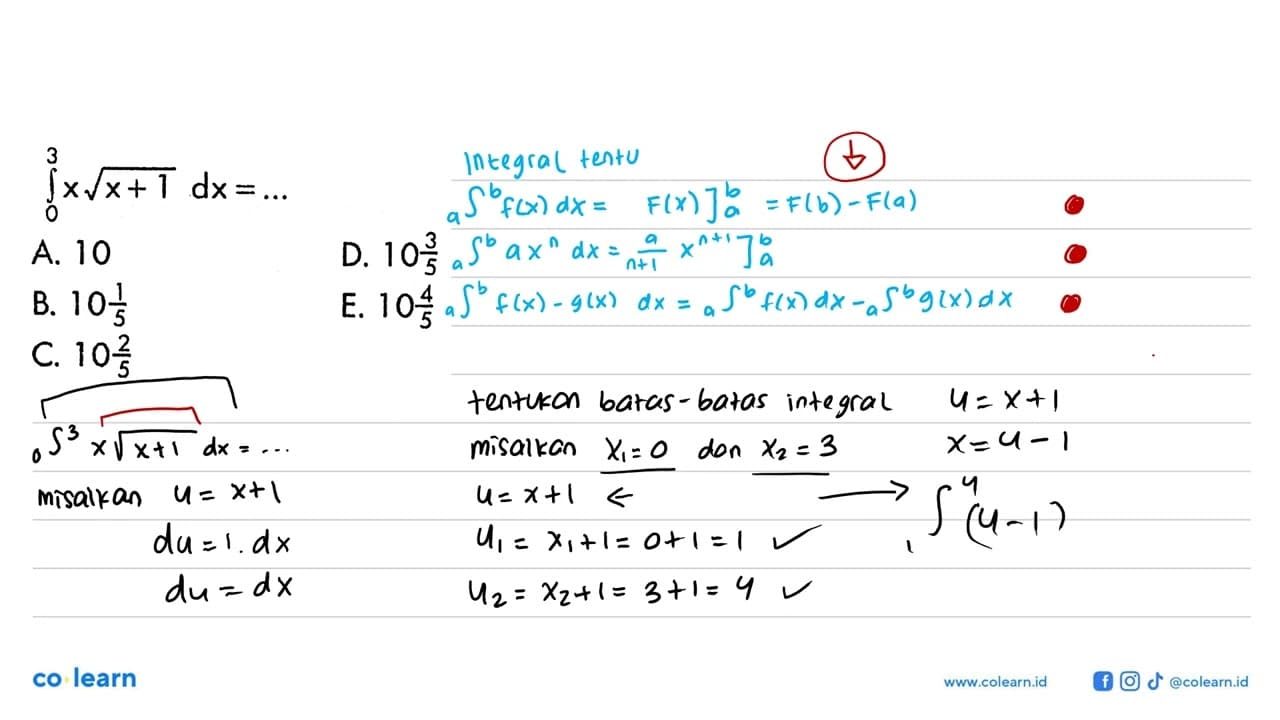 3
∫ x√x+1 dx = ...
0
A. 10
B. 10 1/5
C. 10 2/5
D. 10 3/5
E. 10 4/5
Integral tentu
a∫b f(x) dx = F(x)]b a = F(b) - F(a)
a∫b ax^n dx = a/n+1 x^n+1 ]b a
a∫b f(x) - g(x) dx = a∫b f(x) dx - a∫b g(x) dx
0∫3 x√x+1 dx = ...
misalkan u = x+1
du = 1. dx
du = dx
tentukan batas-batas integral
misalkan x1 = 0 dan x2 = 3
u = x+1 ←
u1 = x1+1 = 0+1 = 1 ✓
u2 = x2+1 = 3+1 = 4 ✓
u = x+1
x = u-1
→ 1∫4 (u-1)
co learn
www.colearn.id
@colearn.id